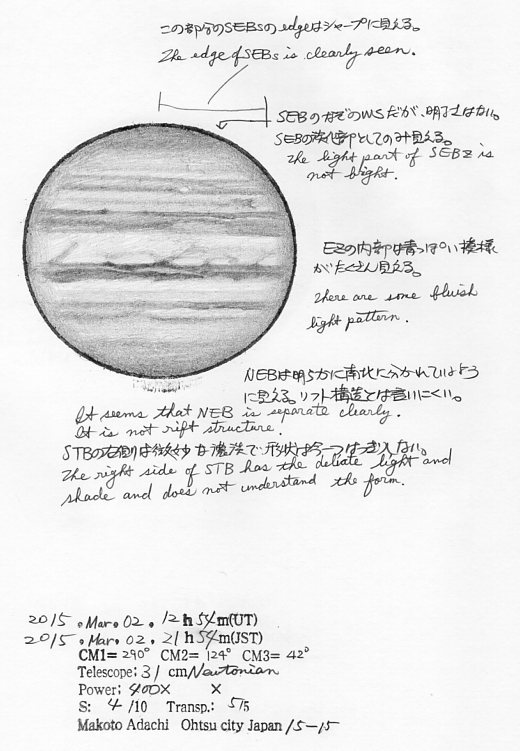 この部分のSEBsのedgeはシャープに見える。
The edge of SEBs is clearly seen.
SEBのなぞのWSだが、明るくはない。
SEBの淡化部としてのみ見える。
The light part of SEBZ is
not bright.
EZの内部は青っぽい模様
がたくさん見える。
There are some bluish
light pattern.
NEBは明らかに南北に分かれているよう
に見える。リフト構造とは言いにくい。
It seems that NEB is separate clearly.
It is not rift structure.
STBの右側は微妙な濃淡で形状は今一つはっきりしない。
The right side of STB has the deliate light and
shade and does not understand the form.
2015.Mar.02.12h54m(UT)
2015.Mar.02.21h54m(JST)
CM1=290° CM2=124° CM3=42°
Telescope: 31 cm Newtonian
Power: 400X X
S: 4 /10 Transp.: 5/5
Makoto Adachi Ohtsu city Japan 15-15